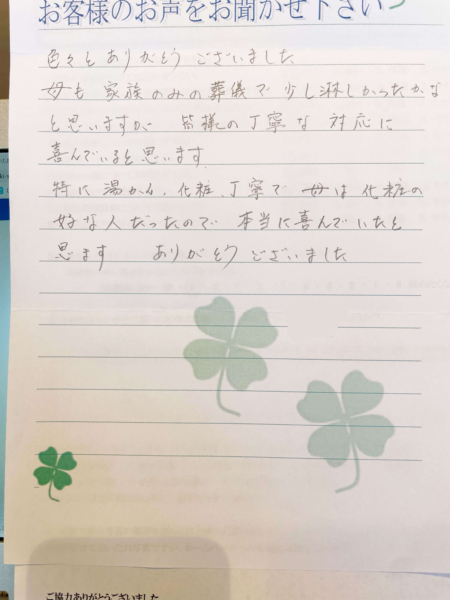 お客様のお声をお聞かせ下さい
色々とありがとうございました
母も家族のみの葬儀で少し淋しかったかな
と思いますが 皆様の丁寧な対応に
喜んでいると思います
特に湯かん、化粧、丁寧で 母は化粧の
好な人だったので 本当に喜んでいたと
思ます ありがとうございました
ご協力ありがとうございました